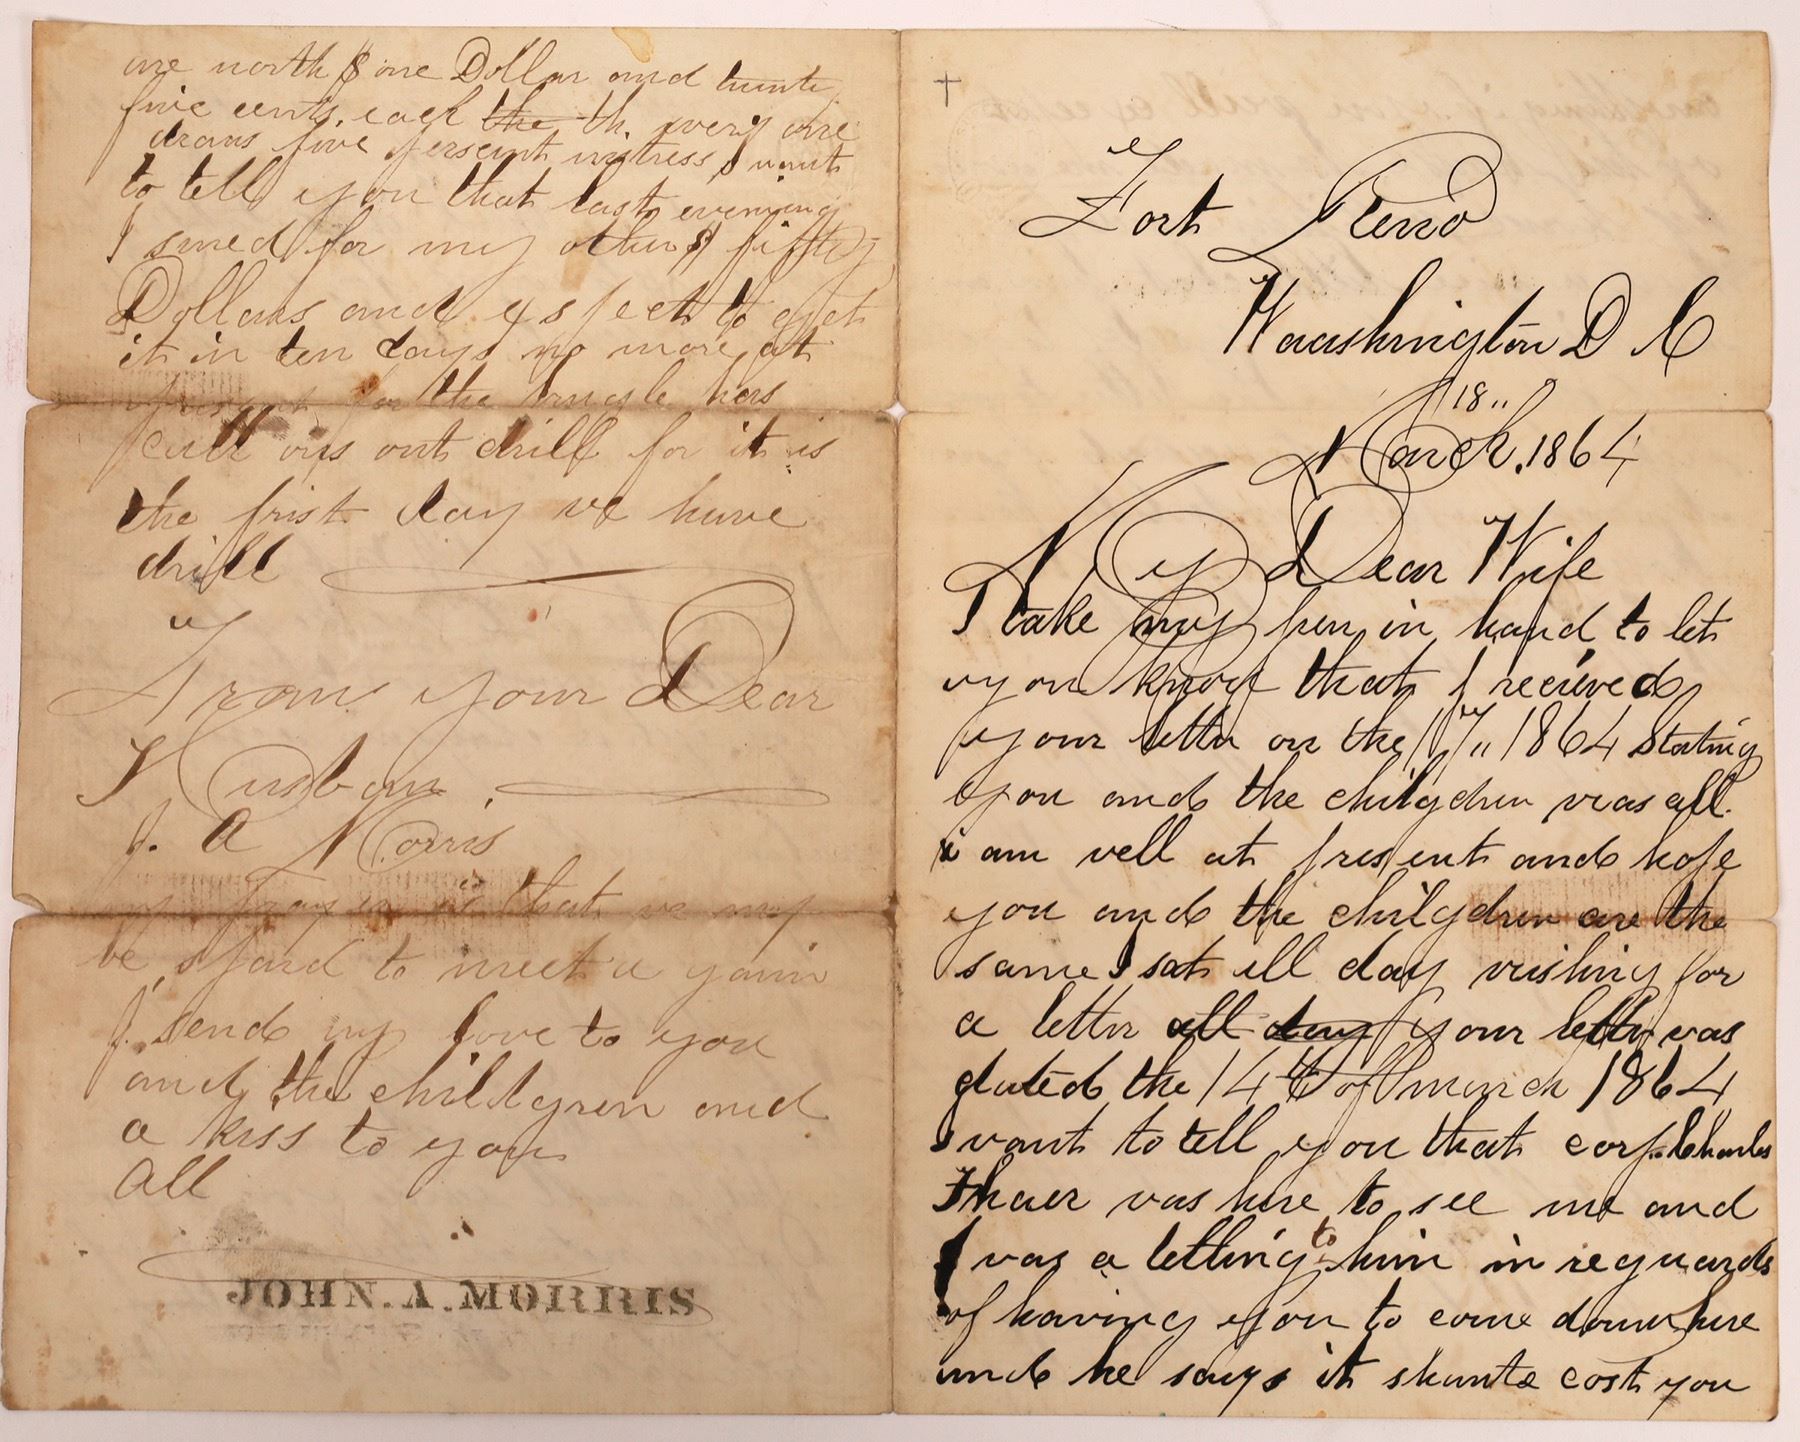 Fort Reno
Waashington D C
18"
March. 1864
My Dear Wife
I take my pen in hand to let
you know that I recieved
your letter on the 17" 1864 stating
you and the chilgdren was all.
i am well at present and hope
you and the chilgdren are the
same I sat all day wishing for
a letter all day your letter was
dated the 14th of march 1864
I want to tell you that corp. Charles
Thaer was here to see me and
I was a letting to him in reguards
of having you to come down here
and he says it shante cost you
are worth $ one Dollar and twente
five cents. each the th. every one
draws five persent intress I want
to tell you that last evening
I sined for my other $ fiftey
Dollars and exspect to get
it in ten days no more at
present for the bugle has
call ous out drill for it is
the frist day we have
drill
From your Dear
Husban
J. A Morris
my prayer is that we may
be spard to meet a gain
I send my love to you
and the childgren and
a kiss to you
all
JOHN. A. MORRIS